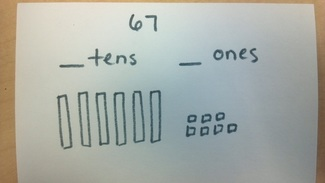 67
__ tens __ ones